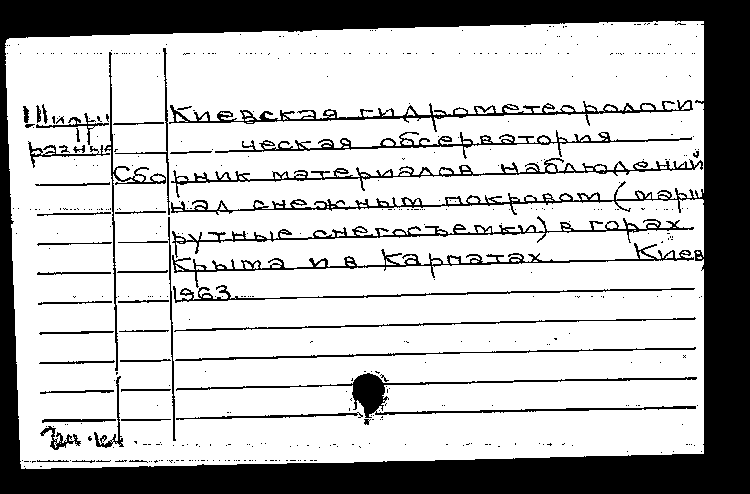 Шифры
разные
Киевская гидрометеорологи-
ческая обсерватория.
Сборник материалов наблюдений
над снежным покровом (марш
рутные снегосъемки) в горах
Крыма и в Карпатах. Киев,
1963.